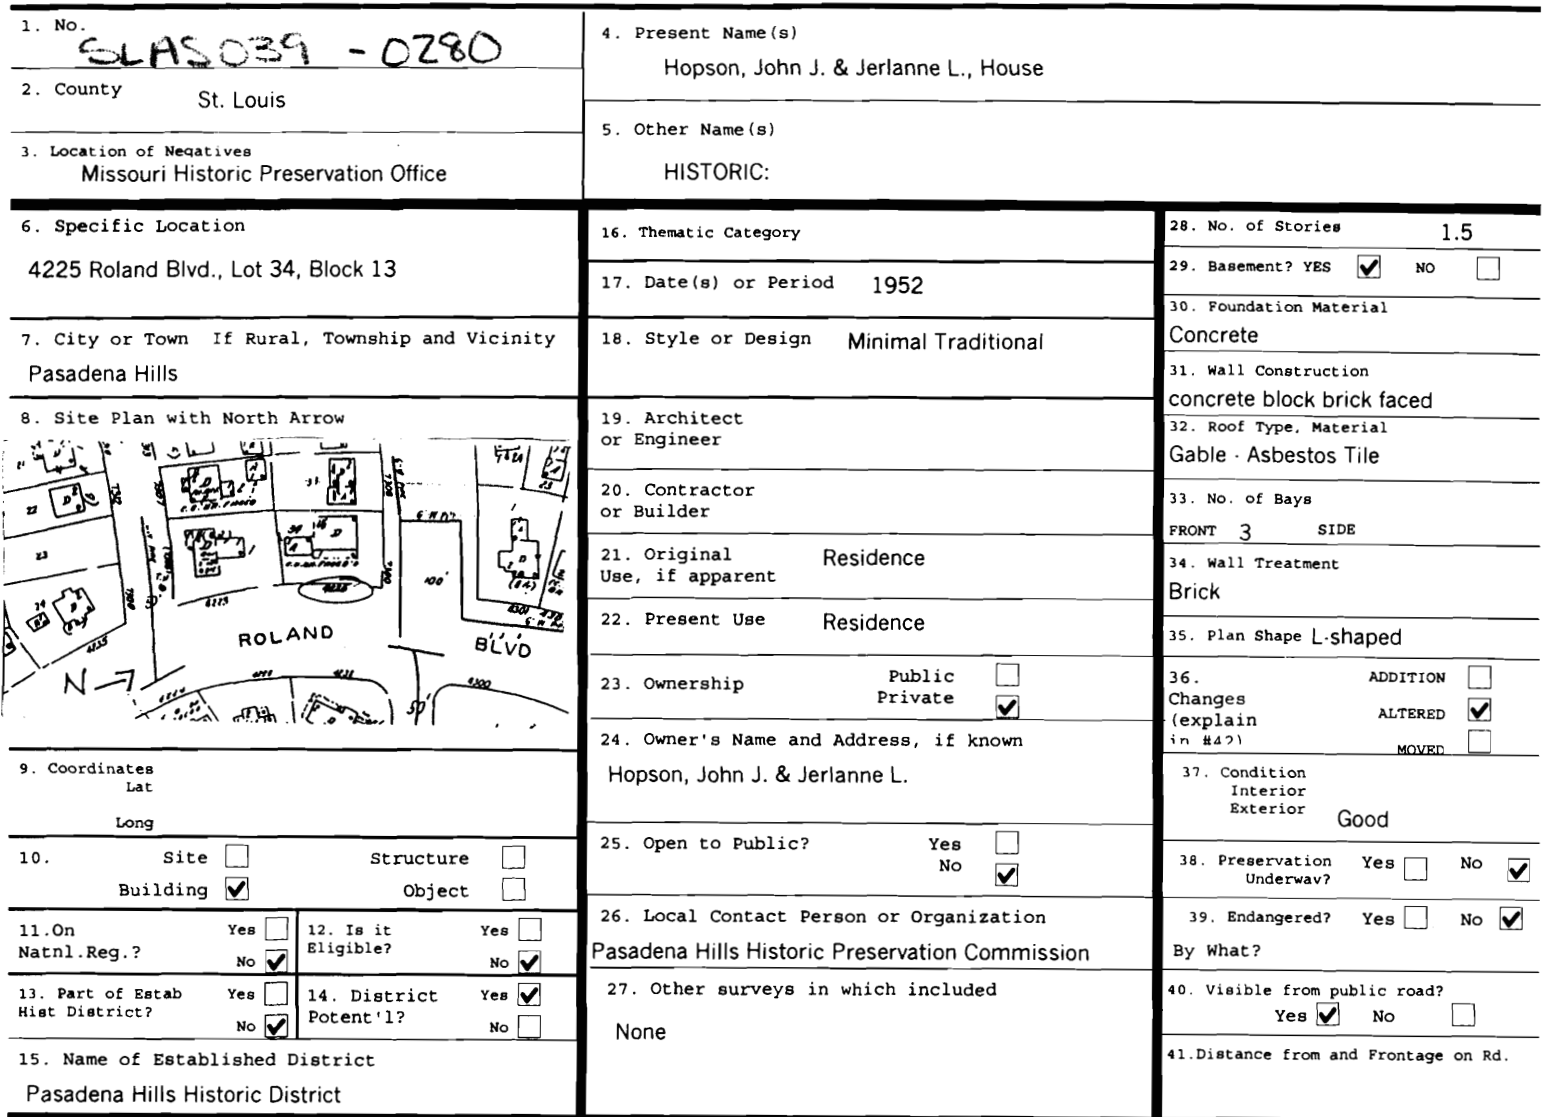 1. No.
SLAS039 - 0280
2. County
St. Louis
3. Location of Negatives
Missouri Historic Preservation Office
4. Present Name(s)
Hopson, John J. & Jerlanne L., House
5. Other Name(s)
HISTORIC:
6. Specific Location
4225 Roland Blvd., Lot 34, Block 13
7. City or Town If Rural, Township and Vicinity
Pasadena Hills
8. Site Plan with North Arrow
22
23
100'
4225
ROLAND
BLVD
N
4300
50'
9. Coordinates
Lat
Long
10. Site Structure
Building ✔ Object
11.On Yes
Natnl.Reg.? No ✔
12. Is it Yes
Eligible? No ✔
13. Part of Estab Yes
Hist District? No ✔
14. District Yes ✔
Potent'l? No
15. Name of Established District
Pasadena Hills Historic District
16. Thematic Category
17. Date(s) or Period 1952
18. Style or Design Minimal Traditional
19. Architect
or Engineer
20. Contractor
or Builder
21. Original Residence
Use, if apparent
22. Present Use Residence
23. Ownership Public
Private ✔
24. Owner's Name and Address, if known
Hopson, John J. & Jerlanne L.
25. Open to Public? Yes
No ✔
26. Local Contact Person or Organization
Pasadena Hills Historic Preservation Commission
27. Other surveys in which included
None
28. No. of Stories 1.5
29. Basement? YES ✔ NO
30. Foundation Material
Concrete
31. Wall Construction
concrete block brick faced
32. Roof Type, Material
Gable - Asbestos Tile
33. No. of Bays
FRONT 3 SIDE
34. Wall Treatment
Brick
35. Plan Shape L-shaped
36. ADDITION
Changes
(explain ALTERED ✔
in #42) MOVED
37. Condition
Interior
Exterior Good
38. Preservation Yes No ✔
Underway?
39. Endangered? Yes No ✔
By What?
40. Visible from public road?
Yes ✔ No
41.Distance from and Frontage on Rd.